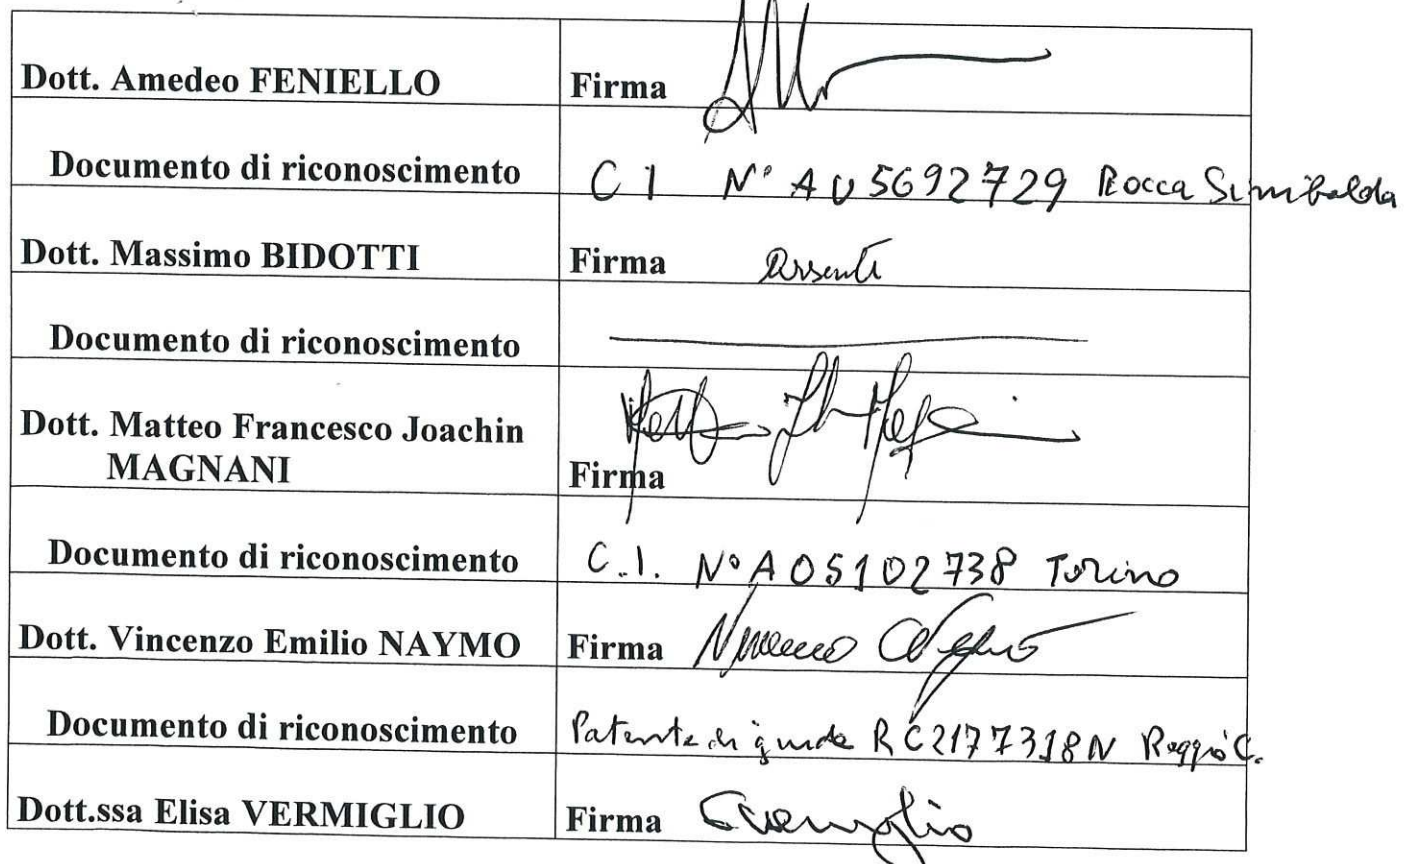 Dott. Amedeo FENIELLO Firma
Documento di riconoscimento C I N° AU5692729 Rocca Sinibalda
Dott. Massimo BIDOTTI Firma Assente
Documento di riconoscimento
Dott. Matteo Francesco Joachin
MAGNANI Firma
Documento di riconoscimento C.I. N° AO5102738 Torino
Dott. Vincenzo Emilio NAYMO Firma
Documento di riconoscimento Patente di guida RC2177318N Reggio C.
Dott.ssa Elisa VERMIGLIO Firma EVermiglio